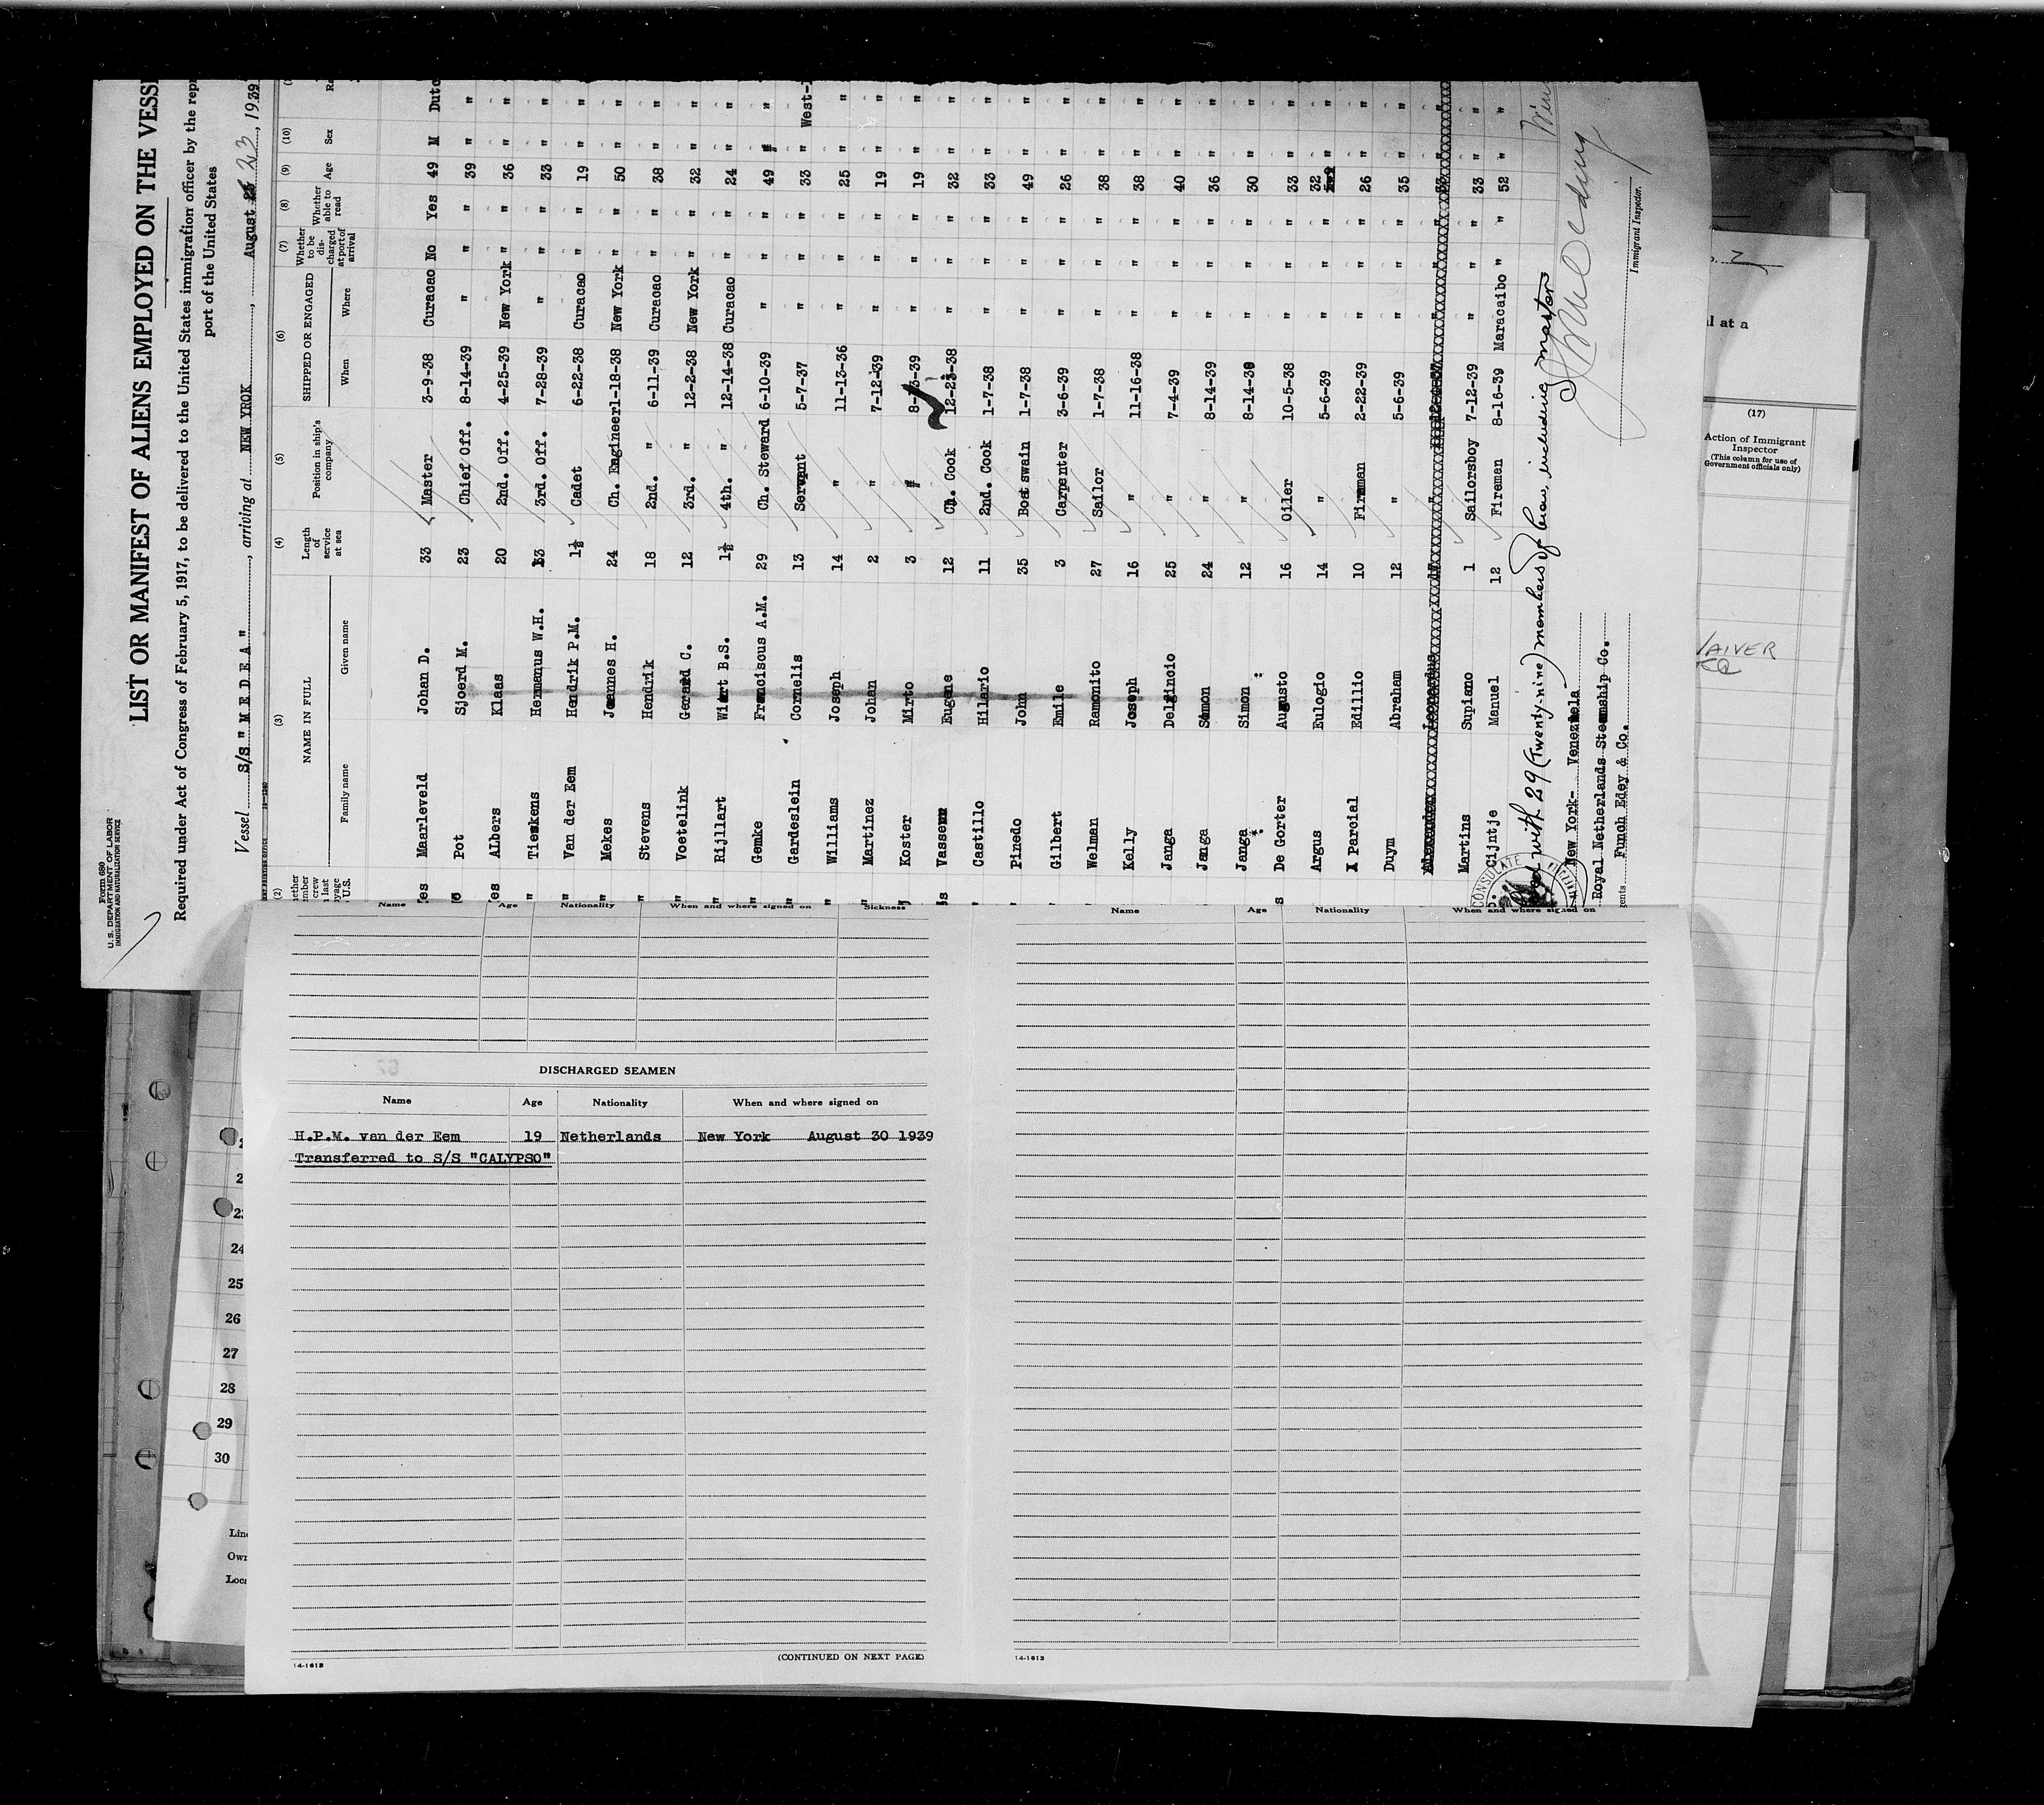 Form 680
U.S. DEPARTMENT OF LABOR
IMMIGRATION AND NATURALIZATION SERVICE
LIST OR MANIFEST OF ALIENS EMPLOYED ON THE VESSE
Required under Act of Congress of February 5, 1917, to be delivered to the United States immigration officer by the repr
port of the United States
Vessel S/s " M E D E A ", arriving at NEW YROK, August 23, 1939
(2) (3) (4) (5) (6) (7) (8) (9) (10)
NAME IN FULL Length of service at sea Position in ship's company SHIPPED OR ENGAGED Whether to be discharged at port of arrival Whether able to read Age Sex
Family name Given name When Where
es Maarleveld Johan D. 33 Master 3-9-38 Curacao No Yes 49 M Dutc
Pot Sjoerd M. 23 Chief Off. 8-14-39 " " " 39 " "
es Albers Klaas 20 2nd. Off. 4-25-39 New York " " 36 " "
" Tieskens Hermanus W.H. 13 3rd. Off. 7-28-39 " " " 33 " "
" Van der Eem Hendrik P.M. 1½ Cadet 6-22-38 Curacao " " 19 " "
" Mekes Joannes H. 24 Ch. Engineer 1-18-38 New York " " 50 " "
" Stevens Hendrik 18 2nd. " 6-11-39 Curacao " " 38 " "
" Voetelink Gerard C. 12 3rd. " 12-2-38 New York " " 32 " "
" Rijllart Wiart B.S. 1½ 4th. " 12-14-38 Curacao " " 24 " "
" Gemke Franciscus A.M. 29 Ch. Steward 6-10-39 " " " 49 " "
" Gardeslein Cornelis 13 Servant 5-7-37 " " " 33 " West-
" Williams Joseph 14 " 11-13-36 " " " 25 " "
" Martinez Johan 2 " 7-12-39 " " " 19 " "
Koster Mirto 3 " 8-13-39 " " " 19 " "
s Vasseur Eugene 12 Ch. Cook 12-23-38 " " " 32 " "
" Castillo Hilario 11 2nd. Cook 1-7-38 " " " 33 " "
" Pinedo John 35 Boatswain 1-7-38 " " " 49 " "
" Gilbert Emile 3 Carpenter 3-6-39 " " " 26 " "
" Welman Ramonito 27 Sailor 1-7-38 " " " 38 " "
" Kelly Joseph 16 " 11-16-38 " " " 38 " "
Janga Delgincio 25 " 7-4-39 " " " 40 " "
Janga Simon 24 " 8-14-39 " " " 36 " "
Janga Simon 12 " 8-14-39 " " " 30 " "
s De Gorter Augusto 16 Oiler 10-5-38 " " " 33 " "
Argus Eulogio 14 " 5-6-39 " " " 32 " "
A Parcial Edillio 10 Fireman 2-22-39 " " " 26 " "
Duym Abraham 12 " 5-6-39 " " " 35 " "
Martins Supiano 1 Sailorsboy 7-12-39 " " " 33 " "
Cijntje Manuel 12 Fireman 8-16-39 Maracaibo " " 52 " "
with 29 (Twenty-nine) members of crew including master
CONSULATE
New York- Venezuela
Royal Netherlands Steamship Co.
Funch Edey & Co.
Immigrant Inspector.
l at a
(17)
Action of Immigrant
Inspector
(This column for use of
Government officials only)
Name Age Nationality When and where signed on Sickness
DISCHARGED SEAMEN
Name Age Nationality When and where signed on
H.P.M. van der Eem 19 Netherlands New York August 30 1939
Transferred to S/S "CALYPSO"
(CONTINUED ON NEXT PAGE)
14-1613
Name Age Nationality When and where signed on
14-1613
24
25
26
27
28
29
30
Line
Own
Loca